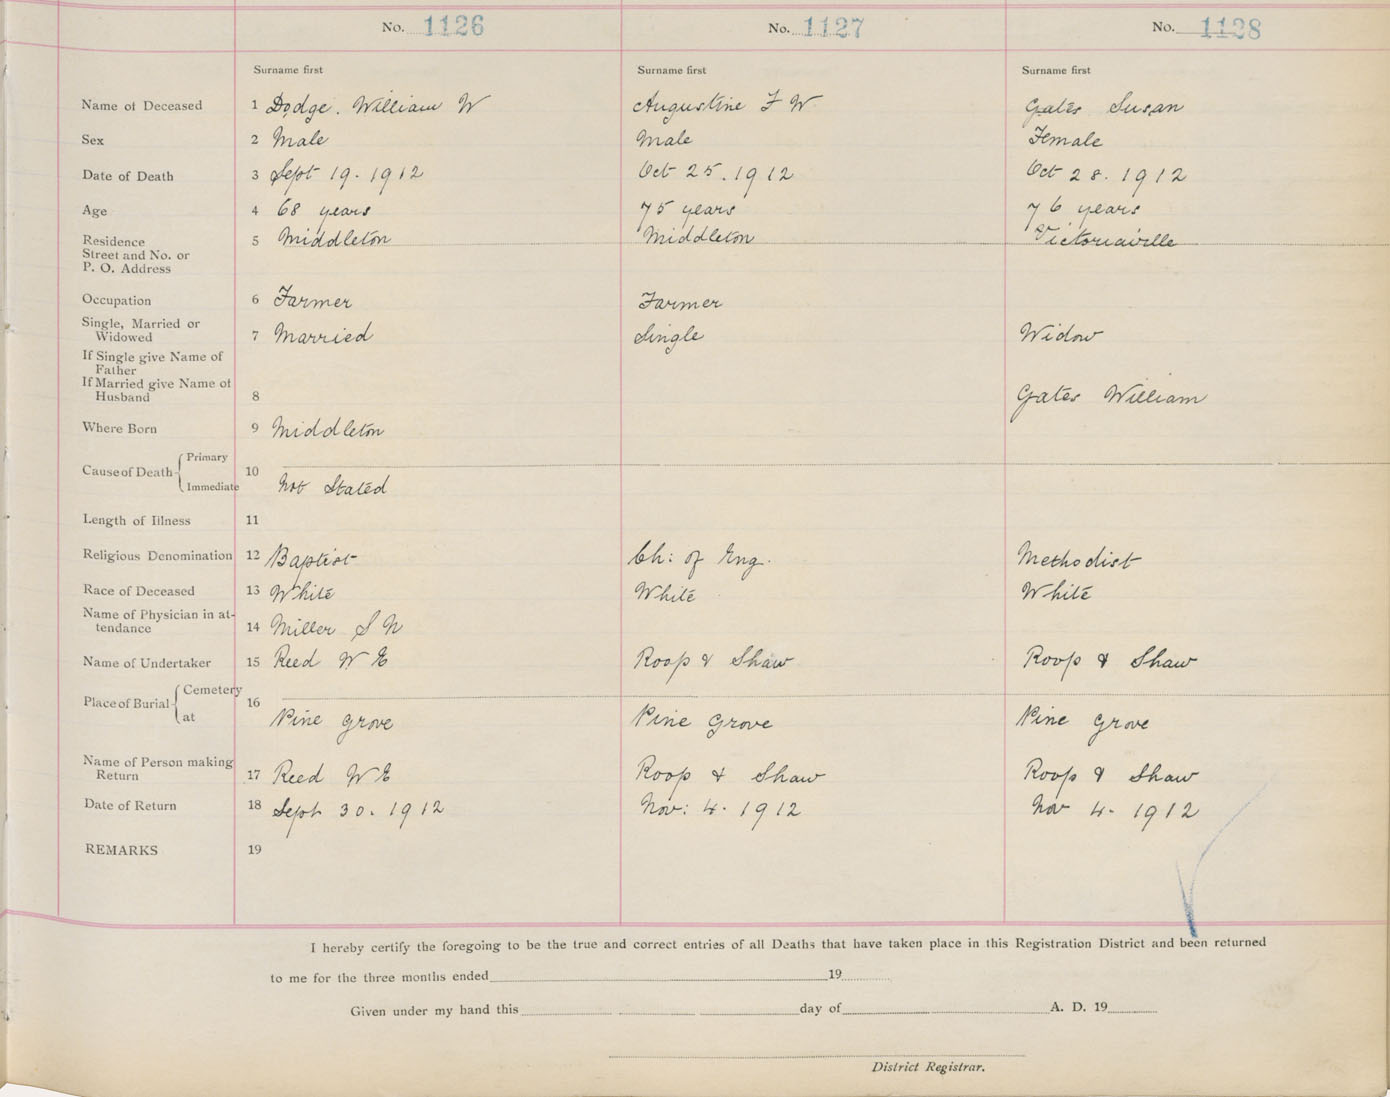 No. 1126 No. 1127 No. 1128
Surname first Surname first Surname first
Name of Deceased 1 Dodge. William W Augustine F W Gates Susan
Sex 2 Male Male Female
Date of Death 3 Sept 19. 1912 Oct 25. 1912 Oct 28. 1912
Age 4 68 years 75 years 76 years
Residence 5 Middleton Middleton Victoriaville
Street and No. or
P. O. Address
Occupation 6 Farmer Farmer
Single, Married or
Widowed 7 Married Single Widow
If Single give Name of
Father
If Married give Name of
Husband 8 Gates William
Where Born 9 Middleton
Cause of Death { Primary
10
Immediate Not Stated
Length of Illness 11
Religious Denomination 12 Baptist Ch: of Eng. Methodist
Race of Deceased 13 White White White
Name of Physician in at-
tendance 14 Miller S N
Name of Undertaker 15 Reed W E Roop & Shaw Roop & Shaw
Place of Burial { Cemetery
16
at Pine Grove Pine Grove Pine Grove
Name of Person making
Return 17 Reed W E Roop & Shaw Roop & Shaw
Date of Return 18 Sept 30. 1912 Nov: 4. 1912 Nov 4. 1912
REMARKS 19
I hereby certify the foregoing to be the true and correct entries of all Deaths that have taken place in this Registration District and been returned
to me for the three months ended 19
Given under my hand this day of A. D. 19
District Registrar.